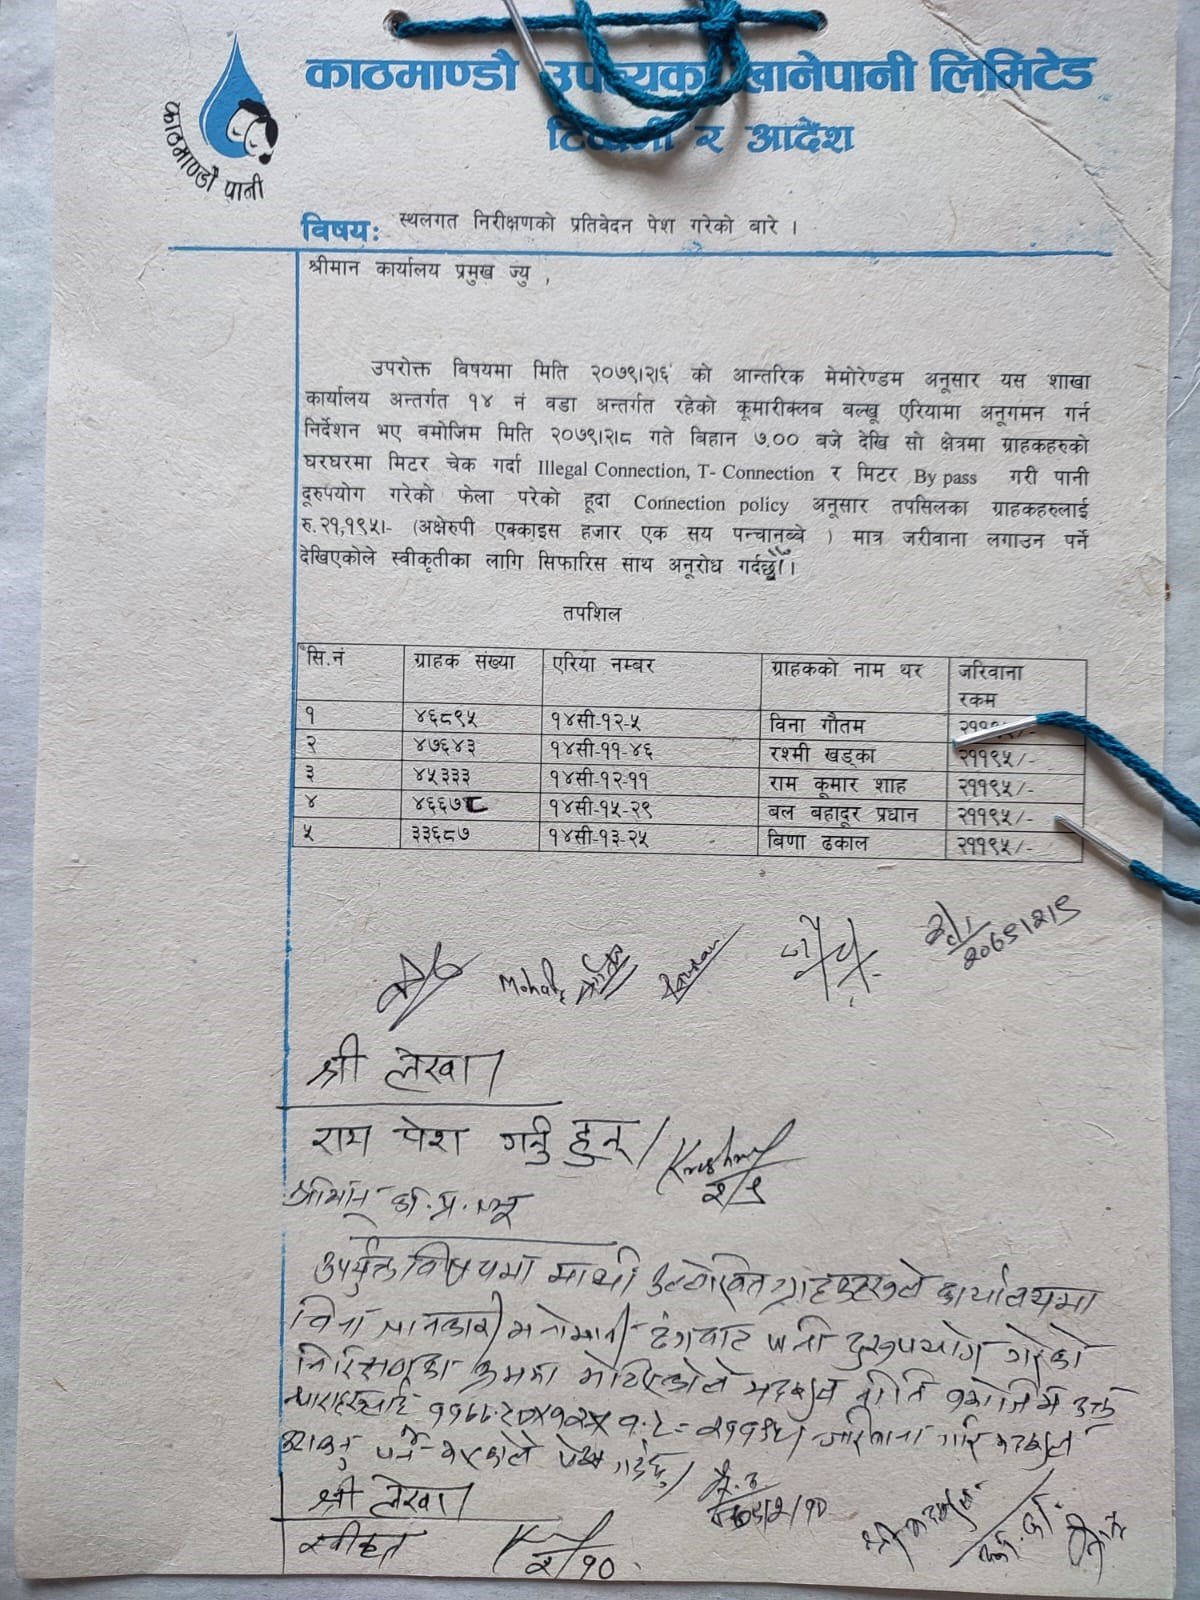 काठमाण्डौ उपत्यका खानेपानी लिमिटेड
टिप्पणी र आदेश
काठमाण्डौ पानी
विषय: स्थलगत निरीक्षणको प्रतिवेदन पेश गरेको बारे ।
श्रीमान कार्यालय प्रमुख ज्यु ,
उपरोक्त विषयमा मिति २०७९।२।६ को आन्तरिक मेमोरेण्डम अनूसार यस शाखा
कार्यालय अन्तर्गत १४ नं वडा अन्तर्गत रहेको कूमारीक्लब बल्खू एरियामा अनूगमन गर्न
निर्देशन भए वमोजिम मिति २०७९।२।८ गते बिहान ७.०० बजे देखि सो क्षेत्रमा ग्राहकहरुको
घरघरमा मिटर चेक गर्दा Illegal Connection, T- Connection र मिटर By pass गरी पानी
दूरुपयोग गरेको फेला परेको हूदा Connection policy अनूसार तपसिलका ग्राहकहरुलाई
रु.२१,१९५।- (अक्षेरुपी एक्काइस हजार एक सय पन्चानब्बे ) मात्र जरीवाना लगाउन पर्ने
देखिएकोले स्वीकृतीका लागि सिफारिस साथ अनूरोध गर्दछौं।
तपशिल
सि.नं ग्राहक संख्या एरिया नम्बर ग्राहकको नाम थर जरिवाना रकम
१ ४६८९५ १४सी-१२-५ विना गौतम २११९५/-
२ ४७६४३ १४सी-११-४६ रश्मी खड्का २११९५/-
३ ४५३३३ १४सी-१२-११ राम कूमार शाह २११९५/-
४ ४६६७८ १४सी-१५-२९ बल बहादूर प्रधान २११९५/-
५ ३३६८७ १४सी-१३-२५ बिणा ढकाल २११९५/-
२०७९।२।९
श्री लेखा
राय पेश गर्नु हुन्
२/९
श्रीमान् का.प्र.ज्यू
उपर्युक्त विषयमा माथी उल्लेखित ग्राहकहरुले कार्यालयमा
विना जानकारी मनोमानी ढंगबाट पानी दुरुपयोग गरेको
श्री लेखा
स्वीकृत
२/१०